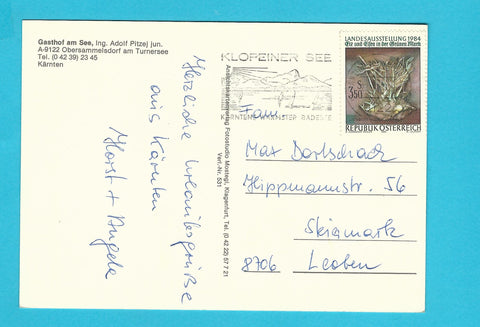 Gasthof am See, Ing. Adolf Pitzej jun.
A-9122 Obersammelsdorf am Turnersee
Tel. (0 42 39) 23 45
Kärnten
Herzliche Urlaubsgrüße
aus Kärnten
Horst + Angela
Ansichtskartenverlag Fotostudio Mostegl, Klagenfurt, Tel. (0 42 22) 57 7 21
Verl.-Nr. 531
KLOPEINER SEE
KÄRNTENS WÄRMSTER BADESEE
LANDESAUSSTELLUNG 1984
Erz und Eisen in der Grünen Mark
S
3.50
REPUBLIK ÖSTERREICH
Fam.
Max Dortschack
Hippmannstr. 56
Steiamark
8706 Leoben